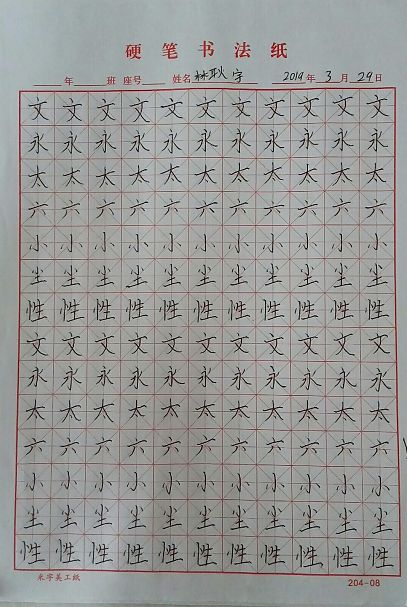 硬笔书法纸
年 班 座号 姓名 林耿宇 2019年3月29日
文文文文文文文文文文文
永永永永永永永永永永永
太太太太太太太太太太太
六六六六六六六六六六六
小小小小小小小小小小小
尘尘尘尘尘尘尘尘尘尘尘
性性性性性性性性性性性
文文文文文文文文文文文
永永永永永永永永永永永
太太太太太太太太太太太
六六六六六六六六六六六
小小小小小小小小小小小
尘尘尘尘尘尘尘尘尘尘尘
性性性性性性性性性性性
米字美工纸 204-08